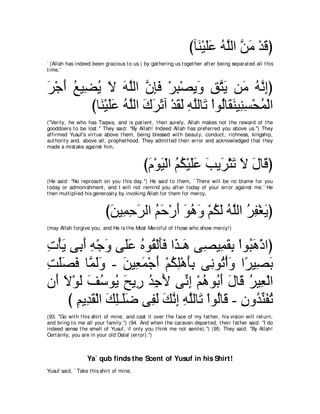 (قَدْ مَنَّ اللَّهُ عَلَيْنَآ)
(Allah has indeed been gracious to us.) by gathering us together after being separated all this
time,'
(إِنَّهُ مَن يَتَّقِ وَيَصْبِرْ فَإِنَّ اللَّهَ لاَ يُضِيعُ أَجْرَ
الْمُحْسِنِينَقَالُواْ تَاللَّهِ لَقَدْ آثَرَكَ اللَّهُ عَلَيْنَا)
("Verily, he who has Taqwa, and is patient, then surely, Allah makes not the reward of the
gooddoers to be lost.'' They said: "By Allah! Indeed Allah has preferred you above us.") They
affirmed Yusuf's virtue above them, being blessed with beauty, conduct, richness, kingship,
authority and, above all, prophethood. They admitted their error and acknowledged that they
made a mistake against him,
(قَالَ لاَ تَثْرَيبَ عَلَيْكُمُ الْيَوْمَ)
(He said: "No reproach on you this day.'') He said to them, `There will be no blame for you
today or admonishment, and I will not remind you after today of your error against me.' He
then multiplied his generosity by invoking Allah for them for mercy,
(يَغْفِرُ اللَّهُ لَكُمْ وَهُوَ أَرْحَمُ الرَحِمِينَ)
(may Allah forgive you, and He is the Most Merciful of those who show mercy!)
(اذْهَبُواْ بِقَمِيصِى هَـذَا فَأَلْقُوهُ عَلَى وَجْهِ أَبِى يَأْتِ
بَصِيرًا وَأْتُونِى بِأَهْلِكُمْ أَجْمَعِينَ - وَلَمَّا فَصَلَتِ
الْعِيرُ قَالَ أَبُوهُمْ إِنِّى لأَجِدُ رِيحَ يُوسُفَ لَوْلاَ أَن
تُفَنِّدُونِ - قَالُواْ تَاللَّهِ إِنَّكَ لَفِى ضَلَـلِكَ الْقَدِيمِ )
(93. "Go with this shirt of mine, and cast it over the face of my father, his vision will return,
and bring to me all your family.'') (94. And when the caravan departed, their father said: "I do
indeed sense the smell of Yusuf, if only you think me not senile).'') (95. They said: "By Allah!
Certainly, you are in your old Dalal (error).'')
Ya`qub finds the Scent of Yusuf in his Shirt!
Yusuf said, `Take this shirt of mine,